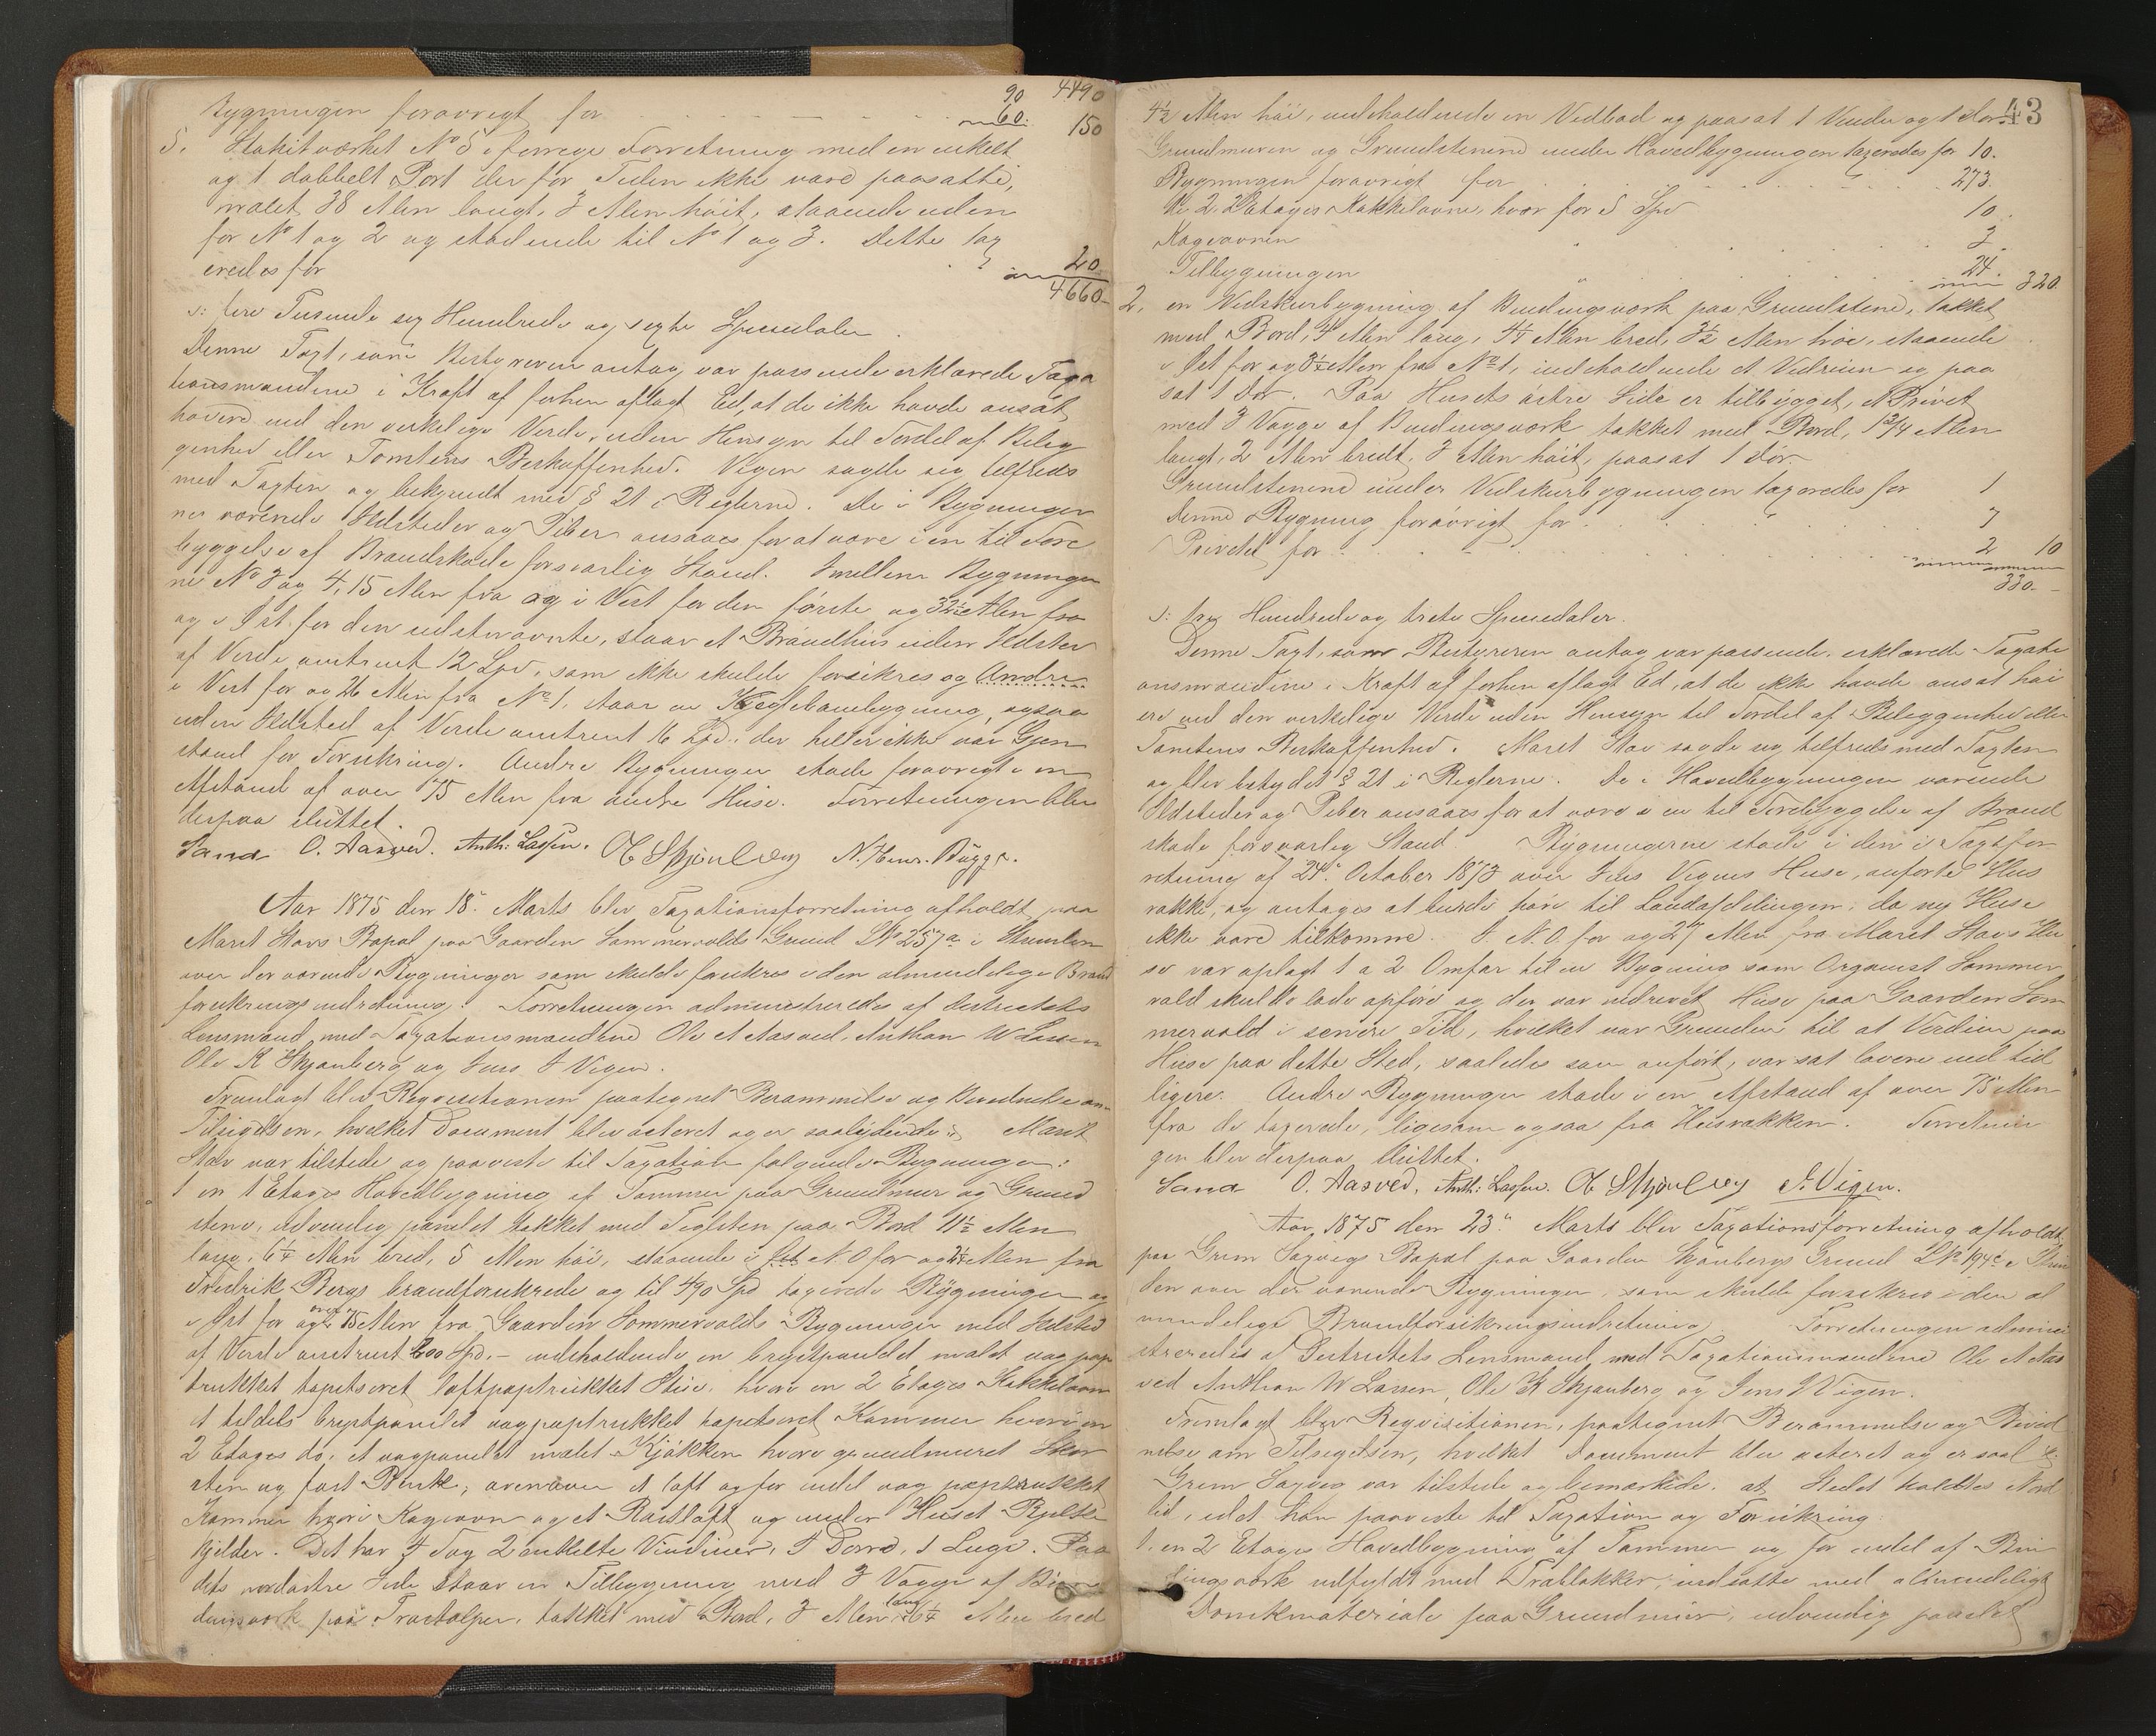 Bygningen forøvrigt for . . . . . 90 4490
60. 150
5. Stakitværket No 5 i forrige Forretning med en enkelt
og 1 dobbelt Port der for Tiden ikke vare paasatte,
malet 38 Alen langt, 3 Alen høit, staaende uden
for No 1 og 2 og stødende til No 1 og 3. Dette tax
eredes for . . 20
4660.
s: fire Tusende sex Hundrede og sexti Speciedaler
Denne Taxt, som Bestyreren antog var passende erklærede Taxa
tionsmændene i Kraft af forhen aflagt Ed, at de ikke havde ansat
høiere end den verkelige Verdi, uden Hensyn til Fordel af Beleg
genhed eller Tomtens Beskaffenhed. Vigen sagde sig tilfreds
med Taxten og bekjendt med § 21 i Reglerne. De i Bygninger
ne værende Ildsteder og Piber ansaaes for at være i en til Fore
byggelse af Brandskade forsvarlig Stand. Imellem Bygninger
ne No 3 og 4, 15 Alen fra og i Vest for den første og 32½ Alen fra
og i Øst for den sidstnævnte, staar et Brøndhus uden Ildsted
af Verdi omtrent 12 Spd., som ikke skulde forsikres og Andre
i Vest for og 26 Alen fra No 1, staar en Keglebanebygning, ogsaa
uden Ildsted af Verdi omtrent 16 Spd. der heller ikke var Gjen
stand for Forsikring. Andre Bygninger stode forøvrigt i en
Afstand af over 75 Alen fra andre Huse. Forretningen blev
derpaa sluttet.
Sand O. Aasved. Anth: Lassen. O K Skjønberg N. Henr. Bügge.
Aar 1875 den 18de Marts blev Taxationsforretning afholdt paa
Marit Stavs Bopæl paa Gaarden Sommervolds Grund LNo 257a i Strinden
over der værende Bygninger som skulde forsikres i den almindelige Brand
forsikringsindretning. Forretningen administreredes af Destriktets
Lensmand med Taxationsmændene Ole A Aasved, Anthon W Lassen
Ole K Skjønberg og Jens J Vigen.
Fremlagt blev Reqvisitionen paategnet Berammelse og Bevidnelse om
Tilsigelsen, hvilket Document blev acteret og er saalydende: Marit
Stav var tilstede og paaviste til Taxation følgende Bygninger:
1 en 1 Etages Hovedbygning af Tømmer paa Grundmur og Grund
stene, udvendig panelet tækket med Teglsten paa Bord 11½ Alen
lang, 6¼ Alen bred, 5 Alen høi, staaende i N.O for og Alen fra
Fredrik Bergs brandforsikrede og til 490 Spd taxerede Bygninger og
i Øst for og over 75 Alen fra Gaarden Sommervolds Bygninger med Ildsted
af Verdi omtrent 600 Spd. – indeholdende en brystpanelet, malet væg pap
trukket tapetseret loftpaptrukket Stue, hvori en 2 Etages Kakkelovn
et tildels brystpanelet vægpaptrukket tapetseret Kammer hvori en
2 Etages do, et vægpanelet malet Kjøkken hvori grundmuret Skor
sten og fast Bænk, ovenover et Loft og for endel væg paptrukket
Kammer hvori Kagovn og et Raaloft og under Huset
kjelder. Det har 4 Fag 2 enkelte Vinduer, 5 Dørre, 1 Luge. Paa
dets nordøstre Side staar en Tilbygning med 3 Vægge af Bin
dingsværk paa Træstolper, tækket med Bord, 3 Alen lang 6¼ Alen bred
43
4½ Alen høi, indeholdende en Vedbod og paasat 1 Vindu og 1 Dør.
Grundmuren og Grundstenene under Hovedbygningen taxeredes for 10.
Bygningen forøvrigt for . . . . 273.
De 2, 2 Etages Kakkelovne, hver for 5 Spd 10.
Kagovnen . . . . . 3.
Tilbygningen . . . . 24. 320
2. en Vedskurbygning af Bindingsværk paa Grundstene, tækket
med Bord, 4 Alen lang, 4¼ Alen bred, 3½ Alen høi, staaende
i Øst for og 3½ Alen fra No 1, indeholdende et Vedrum og paa
sat 1 Dør. Paa Husets østre Side er tilbygget, et Privet
med 3 Vægge af Bindingsværk tækket med Bord, 1¾ Alen
langt, 2 Alen bredt, 3 Alen høit, paasat 1 Dør.
Grundstenene under Vedskurbygningen taxeredes for 1
Denne Bygning forøvrigt for . . . . 7
Privetet for . . . . . 2 10
330.
s: tre Hundrede og trete Speciedaler.
Denne Taxt, som Bestyreren antog var passende, erklærede Taxati
onsmændene i Kraft af forhen aflagt Ed, at de ikke havde ansat høi
ere end den verkelige Verdi uden Hensyn til Fordel af Beleggenhed eller
Tomtens Beskaffenhed. Marit Stav sagde sig tilfreds med Taxten
og blev betydet § 21 i Reglerne. De i Hovedbygningen værende
Ildsteder og Piber ansaaes for at være i en til Forebyggelse af Brand
skade forsvarlig Stand. Bygningerne stode i den i Taxtfor
retning af 24de October 1873 over Jens Vigens Huse, anførte Hus
række, og antages at burde høre til Landafdelingen, da ny Huse
ikke vare tilkomne. I N.O. for og 27 Alen fra Marit Stavs Hu
se var oplagt 1 a 2 Omfar til en Bygning som Organist Sommer
vold skulde lade opføre og der var nedrevet Huse paa Gaarden Som
mervold i senere Tid, hvilket var Grunden til at Verdien paa
Huse paa dette Sted, saaledes som anført, var sat lavere end tid
ligere. Andre Bygninger stode i en Afstand af over 75 Alen
fra de taxerede, ligesom ogsaa fra Husrækken. Forretnin
gen blev derpaa sluttet.
Sand O. Aasved. Anth: Lassen. O K Skjønberg J. Vigen.
Aar 1875 den 23de Marts blev Taxationsforretning afholdt
paa Grim Saxvigs Bopæl paa Gaarden Skjønbergs Grund LNo 194c i Strin
den over der værende Bygninger, som skulde forsikres i den al
mindelige Brandforsikringsindretning. Forretningen admini
streredes af Destriktets Lensmand med Taxationsmændene Ole A Aas
ved Anthon W Lassen, Ole K Skjønberg og Jens J Vigen.
Fremlagt blev Reqvisitionen, paategnet Berammelse og Bevid
nelse om Tilsigelsen, hvilket Document blev acteret og er saal
Grim Saxvig var tilstede og bemærkede, at Stedet kaldtes Nord
lid, idet han paaviste til Taxation og Forsikring:
1. en 2 Etages Hovedbygning af Tømmer og for endel af Bin
dingsværk udfyldt med Træblokker, indsatte med almindeligt
materiale paa Grundmur, udvendig panelet